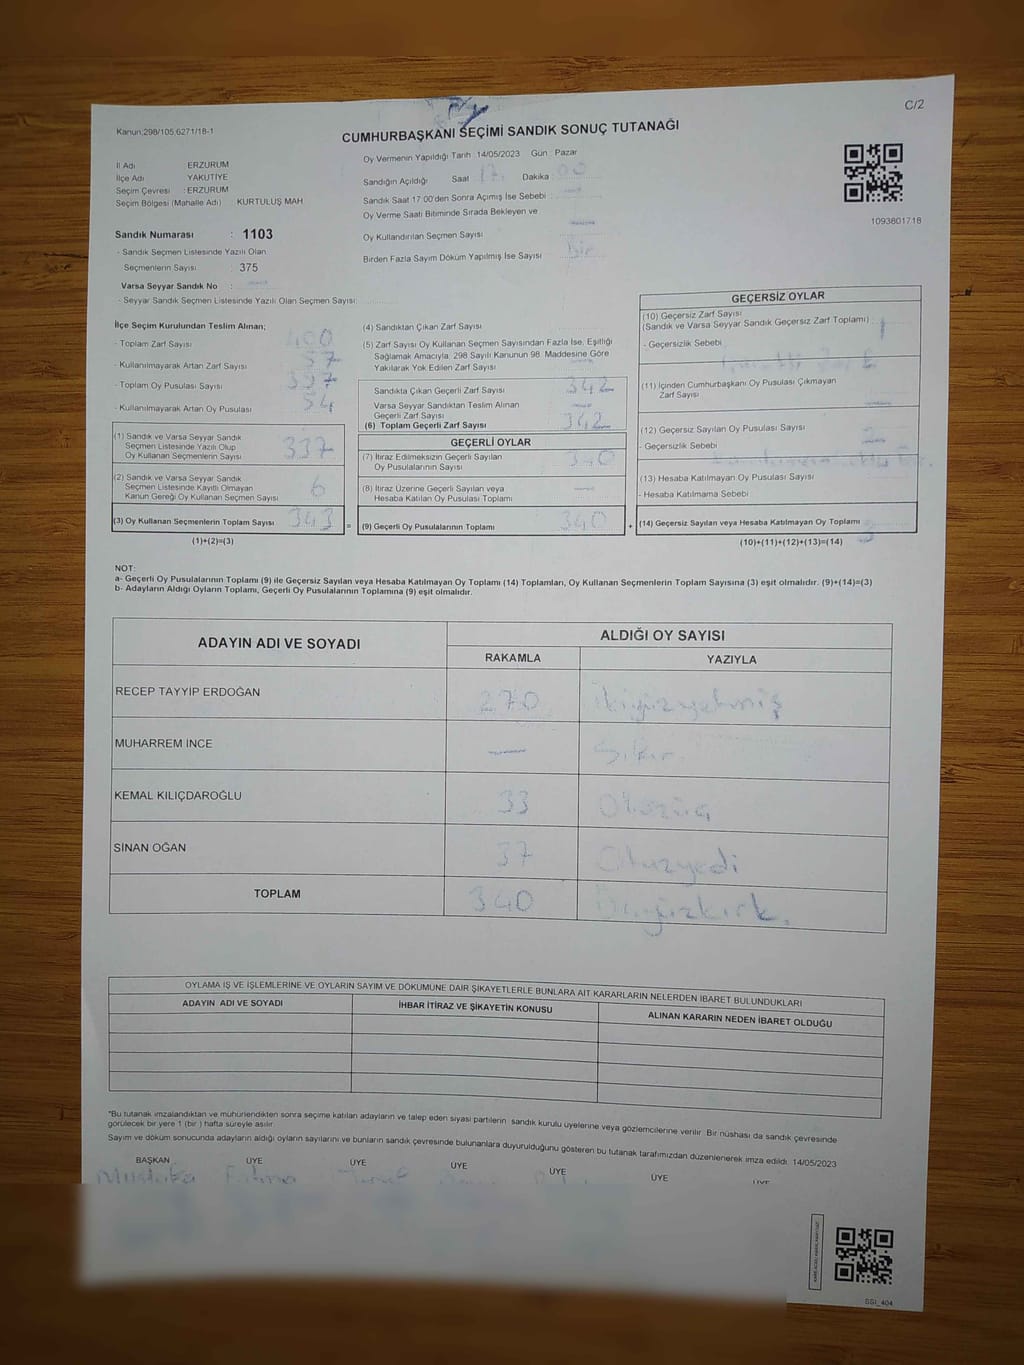 C/2
Kanun,298/105,6271/18-1
CUMHURBAŞKANI SEÇİMİ SANDIK SONUÇ TUTANAĞI
İl Adı ERZURUM
İlçe Adı YAKUTİYE
Seçim Çevresi : ERZURUM
Seçim Bölgesi (Mahalle Adı) KURTULUŞ MAH
Oy Vermenin Yapıldığı Tarih 14/05/2023 Gün Pazar
Sandığın Açıldığı Saat 17. Dakika 00
Sandık Saat 17:00'den Sonra Açımış İse Sebebi : —
Oy Verme Saati Bitiminde Sırada Bekleyen ve
Oy Kullandırılan Seçmen Sayısı —
Birden Fazla Sayım Döküm Yapılmış İse Sayısı Bir
1093801718
Sandık Numarası : 1103
- Sandık Seçmen Listesinde Yazılı Olan
Seçmenlerin Sayısı : 375
Varsa Seyyar Sandık No : —
- Seyyar Sandık Seçmen Listesinde Yazılı Olan Seçmen Sayısı:
İlçe Seçim Kurulundan Teslim Alınan;
- Toplam Zarf Sayısı 400
- Kullanılmayarak Artan Zarf Sayısı 57
- Toplam Oy Pusulası Sayısı
- Kullanılmayarak Artan Oy Pusulası 54
(1) Sandık ve Varsa Seyyar Sandık
Seçmen Listesinde Yazılı Olup
Oy Kullanan Seçmenlerin Sayısı 337
(2) Sandık ve Varsa Seyyar Sandık
Seçmen Listesinde Kayıtlı Olmayan
Kanun Gereği Oy Kullanan Seçmen Sayısı 6
(3) Oy Kullanan Seçmenlerin Toplam Sayısı 343 =
(1)+(2)=(3)
(4) Sandıktan Çıkan Zarf Sayısı
(5) Zarf Sayısı Oy Kullanan Seçmen Sayısından Fazla İse, Eşitliği
Sağlamak Amacıyla, 298 Sayılı Kanunun 98. Maddesine Göre
Yakılarak Yok Edilen Zarf Sayısı
Sandıkta Çıkan Geçerli Zarf Sayısı 342
Varsa Seyyar Sandıktan Teslim Alınan
Geçerli Zarf Sayısı —
(6) Toplam Geçerli Zarf Sayısı 342
GEÇERLİ OYLAR
(7) İtiraz Edilmeksizin Geçerli Sayılan
Oy Pusulalarının Sayısı 340
(8) İtiraz Üzerine Geçerli Sayılan veya
Hesaba Katılan Oy Pusulası Toplamı —
(9) Geçerli Oy Pusulalarının Toplamı 340 +
GEÇERSİZ OYLAR
(10) Geçersiz Zarf Sayısı
(Sandık ve Varsa Seyyar Sandık Geçersiz Zarf Toplamı) 1
- Geçersizlik Sebebi
(11) İçinden Cumhurbaşkanı Oy Pusulası Çıkmayan
Zarf Sayısı —
(12) Geçersiz Sayılan Oy Pusulası Sayısı 2
- Geçersizlik Sebebi
(13) Hesaba Katılmayan Oy Pusulası Sayısı
- Hesaba Katılmama Sebebi
(14) Geçersiz Sayılan veya Hesaba Katılmayan Oy Toplamı 3
(10)+(11)+(12)+(13)=(14)
NOT:
a- Geçerli Oy Pusulalarının Toplamı (9) ile Geçersiz Sayılan veya Hesaba Katılmayan Oy Toplamı (14) Toplamları, Oy Kullanan Seçmenlerin Toplam Sayısına (3) eşit olmalıdır. (9)+(14)=(3)
b- Adayların Aldığı Oyların Toplamı, Geçerli Oy Pusulalarının Toplamına (9) eşit olmalıdır.
ADAYIN ADI VE SOYADI ALDIĞI OY SAYISI
RAKAMLA YAZIYLA
RECEP TAYYİP ERDOĞAN 270 ikiyüzyetmiş
MUHARREM İNCE — Sıfır
KEMAL KILIÇDAROĞLU 33 Otuzüç
SİNAN OĞAN 37 Otuzyedi
TOPLAM 340 Üçyüzkırk.
OYLAMA İŞ VE İŞLEMLERİNE VE OYLARIN SAYIM VE DÖKÜMÜNE DAİR ŞİKAYETLERLE BUNLARA AİT KARARLARIN NELERDEN İBARET BULUNDUKLARI
ADAYIN ADI VE SOYADI İHBAR İTİRAZ VE ŞİKAYETİN KONUSU ALINAN KARARIN NEDEN İBARET OLDUĞU
*Bu tutanak imzalandıktan ve mühürlendikten sonra seçime katılan adayların ve talep eden siyasi partilerin sandık kurulu üyelerine veya gözlemcilerine verilir. Bir nüshası da sandık çevresinde
görülecek bir yere 1 (bir ) hafta süreyle asılır.
Sayım ve döküm sonucunda adayların aldığı oyların sayılarını ve bunların sandık çevresinde bulunanlara duyurulduğunu gösteren bu tutanak tarafımızdan düzenlenerek imza edildi. 14/05/2023
BAŞKAN ÜYE ÜYE ÜYE ÜYE ÜYE ÜYE
Mustafa Fatma
SSI_404